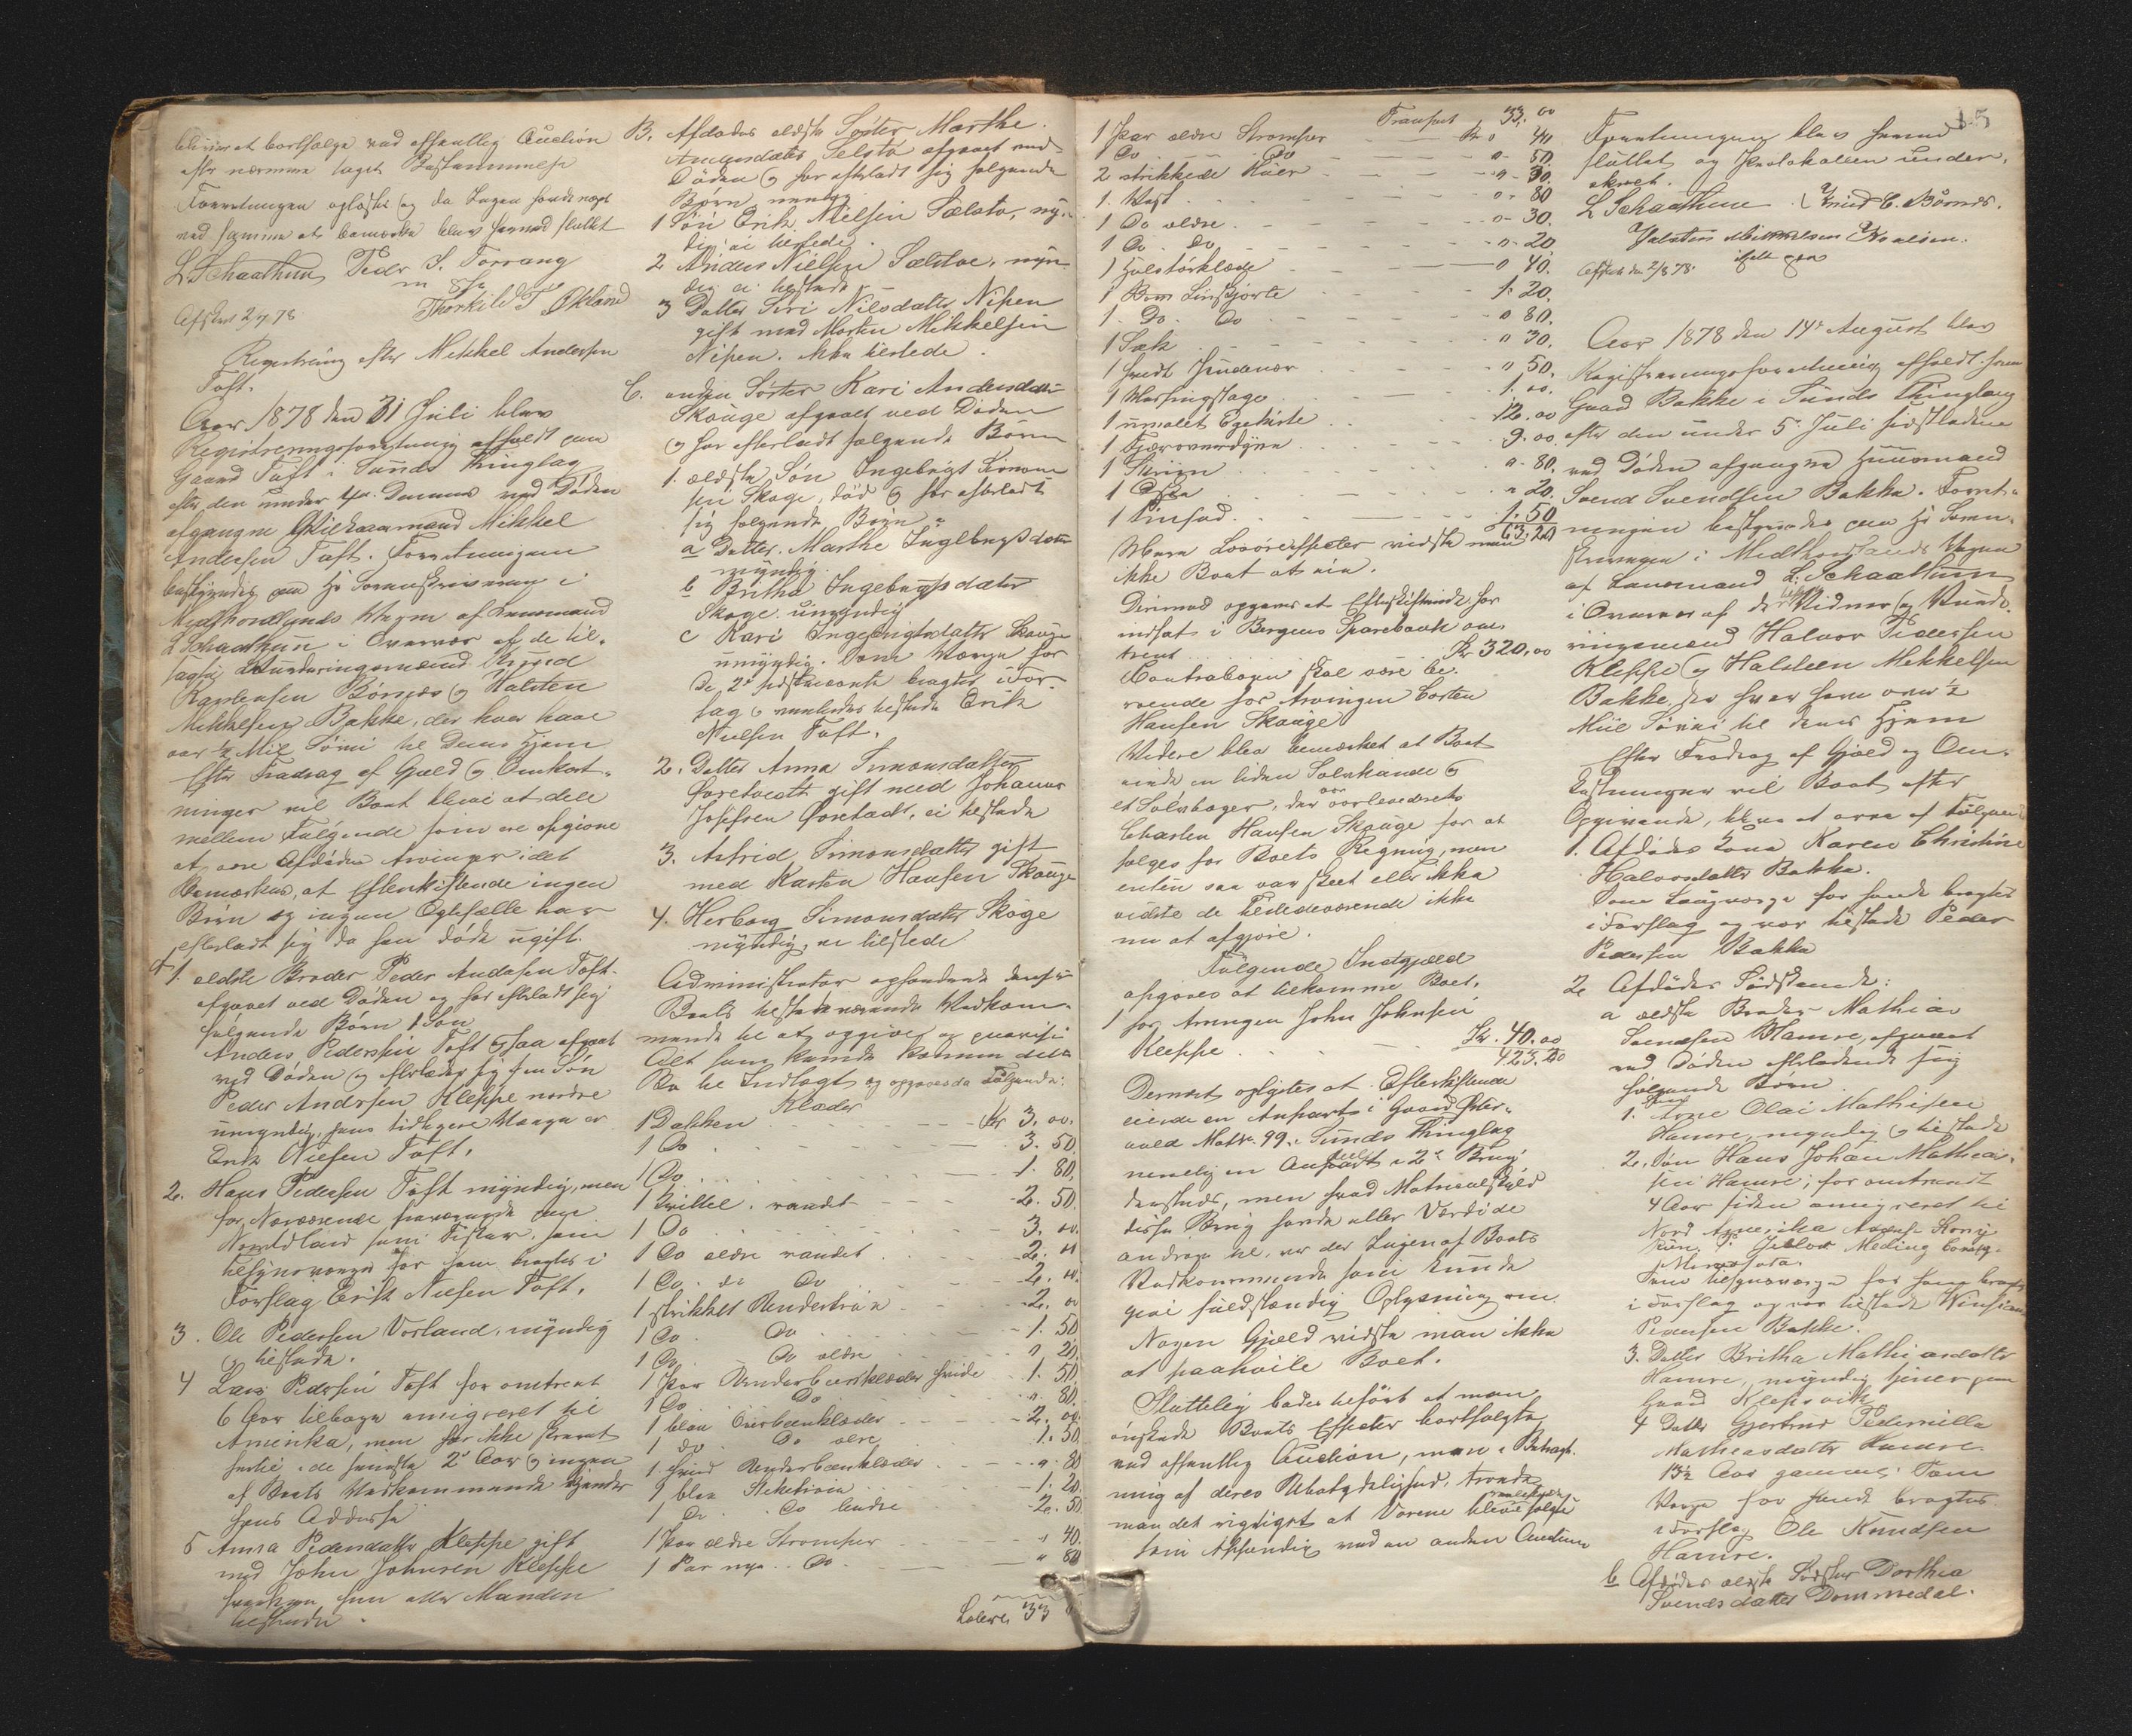 blive at bortsælge ved offentlig Auction
efter nærmere taget Bestemmelse
Forretningen oplæstes og da Ingen havde noget
ved samme at bemærke blev hermed sluttet
L Schaathun Peder S. Forrang
Thorkild T Økland
Afskr 2/7 78
Registrering efter Mikkel Andersen
Toft.
Aar 1878 den 31 Juli blev
Registreringsforretning afholdt paa
Gaard Toft i Sunds Thinglag
efter den under ved Døden
afgangne Mikkel
Andersen Toft. Forretningen
bestyredes paa Hr Sorenskriveren i
Midthordlands Vegne af Lensmand
L Schaathun i Overvær af de til-
tagne Vurderingsmænd Knud
Karstensen Børnes og Halsten
Mikkelsen Bakke, der hver have
over ½ Mil Søvei til deres Hjem
Efter Fradrag af Gjæld og Omkost-
ninger vil Boet blive at dele
mellem Følgende som ere opgivne
at være Afdødes Arvinger idet
bemærkes, at Efterskiftende ingen
Børn og ingen Ægtefælle har
efterladt sig da han døde ugift.
A 1. ældste Broder Peder Andersen Toft
afgaaet ved Døden og har efterladt sig
følgende Børn 1 Søn
Anders Pedersen Toft ogsaa afgaaet
ved Døden og efterlader sig en Søn
Peder Andersen Kleppe nordre
umyndig, hans tidligere Værge er
Erik Nielsen Toft.
2. Hans Pedersen Toft myndig, men
for Nærværende fraværende paa
Nordland som Fisker, som
tilsynsværge for ham bragtes i
Forslag Erik Nielsen Toft.
3. Ole Pedersen Vorland, myndig
og tilstede.
4 Lars Pedersen Toft for omtrent
6 Aar tilbage emigreret til
Amerika, men har ikke skrevet
hertil i de seneste 2de Aar og ingen
af Boets Vedkommende kjender
hans Addresse
5 Anna Pedersdatter Kleppe gift
med John Johnsen Kleppe
hverken hun eller Manden
tilstede.
B. Afdødes ældste Søster Marthe
Andersdatter Selstø afgaaet ved
Døden og har efterladt sig følgende
Børn nemlig
1 Søn Erik Nielsen Sælstø, myn-
dig ei tilstede.
2 Anders Nielsen Sælstøe, myn
dig ei tilstede
3 Datter Siri Nilsdatter Nipen
gift med Morten Mikkelsen
Nipen. ikke tilstede.
C. anden Søster Kari Andersdatter
Skouge afgaaet ved Døden
og har efterladt følgende Børn
1. ældste Søn Ingebrigt Simon
sen Skoge, død og har efterladt
sig følgende Børn
a Datter. Marthe Ingebrigtsdatter
myndig.
b Britha Ingebrigtsdatter
Skoge umyndig
c Kari Ingebrigtsdatter Skouge
umyndig. Som Værge for
de 2de sidstnævnte bragtes i For-
slag og var tilstede Erik
Nielsen Toft.
2. Datter Anna Simonsdatter
Øvretvedt gift med Johannes
Josefsen Øvretvedt, ei tilstede
3. Astrid Simonsdatter gift
med Karsten Hansen Skouge
4. Herborg Simonsdatter Skoge
myndig, ei tilstede
Administrator opfordrede derpaa
Boets tilstedeværende Vedkom-
mende til at opgive og paavise
Alt som kunde komme dette
Bo til Indtægt og opgaves da Følgende:
Klæder
1 Dakken Kr 3. 00.
1 Do 3. 50
1 Do 1. 80.
1 Kittel, randet 2. 50
1 Do 3. 00.
1 Do ældre randet 2. "
1 Do. do Do 2. 00.
1 strikket Undertrøie 2. 00
1 Do. Do 1. 50
1 Do Do ældre " 20
1 Par Underbenklæder hvide 1. 50
1 Do Do ". 80.
1 blaa Overbenklæder 2. 00.
1 Do Do ældre 1. 50
1 hvid Underbenklæder ". 80
1 blaa Stiktrøie 1. 20.
1 Do. Do bedre 2. 50
1 Par ældre Strømper " 40.
1 Par nye Do " 80
Lateris 33
15
Transport 33. 00
1 Par ældre Strømper Kr " 40
1 Do Do " 50.
2 strikkede Huer " 30.
1. Vest " 80
1 Do ældre " 30.
1 Do. Do " 20
1 Halstørklæde " 40.
1 Bom Linskjorte 1. 20.
1. Do. Do " 80.
1 Sæk " 30.
1 hvidt " 50.
1 Messingstage 1. 00.
1 umalet Egekiste 12. 00
1 Fjær overdyne 9. 00.
1 Skrin " 80.
1 Øxe " 20.
1 1. 50
63. 20
Mere Løsøreeffecter vidste man
ikke Boet at eie.
Derimod opgaves at Efterskiftende har
indsat i Bergens Sparebank om
trent Kr 320,00
Contrabogen skal være be-
roende hos Arvingen Carsten
Hansen Skouge
Videre blev bemærket at Boet
eiede en liden Sølvkande og
et Sølvbæger, der var overleveret
Charsten Hansen Skouge for at
sælges for Boets Regning, men
enten saa var skeet eller ikke
vidste de Tilstedeværende ikke
nu at afgjøre.
Følgende Indgjæld
opgaves at tilkomme Boet.
1 hos Arvingen John Johnsen
Kleppe Kr. 40.00
423.20
Dernæst oplystes at Efterskiftende
eiede en Anpart i Gaard Øster-
vold Matr. 99. i Sunds Thinglag
nemlig en Anpart i 2de Brug
dersteds, men hvad Matrikelskyld
disse Brug havde eller Værdi de
androge til, var der Ingen af Boets
Vedkommende som kunde
give fuldstændig Oplysning om
Nogen Gjæld vidste man ikke
at paahvile Boet.
Sluttelig bades tilført at man
ønskede Boets Effecter bortsolgte
ved offentlig Auction, men i Betragt-
ning af deres Ubetydelighed, troede
man det rigtigst at Varene bleve solgte
som Afhændig ved en anden Auction
Forretningen blev hermed
sluttet og Protokollen under-
skreven.
L Schaathun. Knud C. Børnes.
Halsten Mikkelsen
ifølt pen
Afskr den 2/8 78.
Aar 1878 den 14de August blev
Registreringsforretning afholdt paa
Gaard Bakke i Sunds Thinglag
efter den under 5 Juli sidstleden
ved Døden afgangne Huusmand
Svend Svendsen Bakke. Forret-
ningen bestyredes paa Hr Soren-
skriveren i Midthordlands Vegne
af Lensmand L. Schaathun
i Overvær af de Vidner og Vurde-
ringsmænd Halvor Pedersen
Kleppe og Halsteen Mikkelsen
Bakke, der hver have over ½
Miil Søvei til deres Hjem
Efter Fradrag af Gjæld og Om-
kostninger vil Boet efter
Opgivende, blive at arve af Følgende
1. Afdødes Kone Karen Christine
Halvorsdatter Bakke.
Som Laugværge for hende bragtes
i Forslag og var tilstede Peder
Pedersen Bakke
2. Afdødes Sødskende:
a ældste Broder Mathias
Svendsen Hamre, afgaaet
ved Døden efterladende sig
følgende Børn.
1. Søn Arne Olai Mathisen
Hamre, myndig og tilstede
2. Søn Hans Johan Mathias-
sen Hamre, for omtrent
4 Aar siden emigreret til
Nord Amerika
Minnesota.
Som tilsynsværge for ham bragtes
i Forslag og var tilstede
Pedersen Bakke.
3. Datter Britha Mathiasdatter
Hamre, myndig tjener paa
Gaard Klepsvik
4 Datter Gjertrud Pedernilla
Mathiasdatter Hamre
13½ Aar gammel. Som
Værge for hende bragtes
i Forslag Ole Knudsen
Hamre.
b Afdødes ældste Søster Dorthea
Svendsdatter Dommedal.